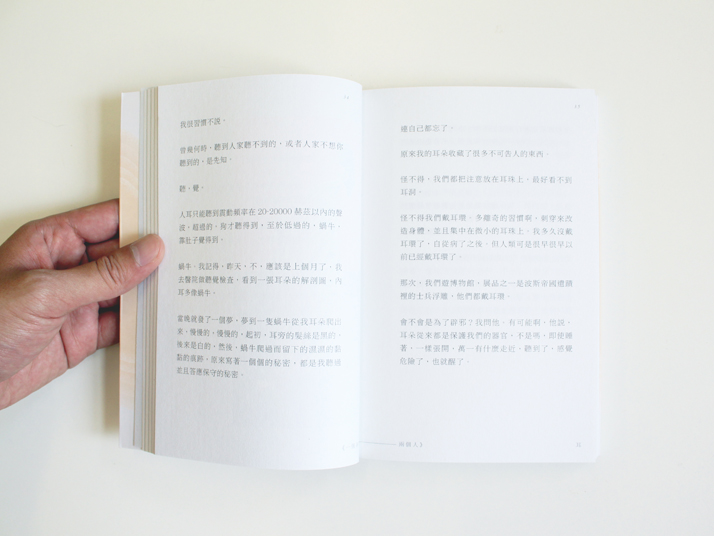 我很習慣不說。
曾幾何時，聽到人家聽不到的，或者人家不想你
聽到的，是先知。
聽。覺。
人耳只能聽到震動頻率在 20-20000 赫茲以內的聲
波。超過的，狗才聽得到，至於低過的，蝸牛，
靠肚子覺得到。
蝸牛，我記得，昨天，不，應該是上個月了，我
去醫院做聽覺檢查，看到一張耳朵的解剖圖。內
耳多像蝸牛。
當晚就發了一個夢。夢到一隻蝸牛從我耳朵爬出
來，慢慢的，慢慢的。起初，耳旁的髮鬢是黑的，
後來是白的。然後，蝸牛爬過而留下的濕濕的黏
黏的痕跡，原來寫著一個個的秘密，都是我聽過
並且答應保守的秘密，
連自己都忘了。
原來我的耳朵收藏了很多不可告人的東西。
怪不得，我們都把注意放在耳珠上，最好看不到
耳洞。
怪不得我們戴耳環。多離奇的習慣啊，刺穿來改
造身體，並且集中在微小的耳珠上。我多久沒戴
耳環了，自從病了之後。但人類可是很早很早以
前已經戴耳環了。
那次，我們遊博物館，展品之一是波斯帝國禮儀
裡的士兵浮雕。他們都戴耳環。
會不會是為了辟邪？我問他。有可能啊，他說，
耳朵從來都是保護我們的器官，不是嗎，即使睡
著，一樣張開，萬一有什麼走近，聽到了，感覺
危險了，也就醒了。